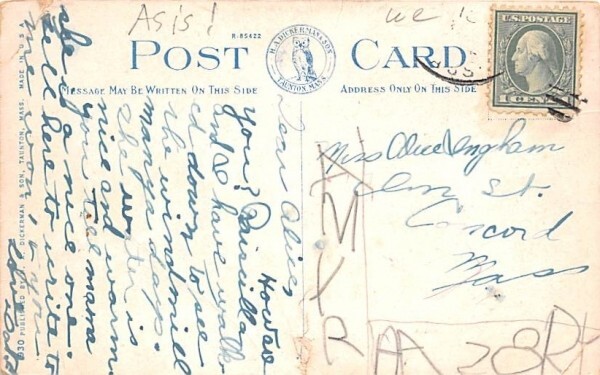 As is!
R-85422
POST CARD
H.A. DICKERMAN & SON
TAUNTON, MASS.
MESSAGE MAY BE WRITTEN ON THIS SIDE
ADDRESS ONLY ON THIS SIDE
U.S. POSTAGE
1 CENT 1
Dear Alice,
How are
you? Priscilla
and I have walk
ed down to see
the windmill
many days.
The water is
nice and warm.
you tell mama
she is a nice one.
tell her to write to
me won't you.
Miss Alice Ingham
Elm St.
Concord
Mass
AMYR
MADE IN U.S.A.
PUBLISHED BY H. A. DICKERMAN & SON, TAUNTON, MASS.